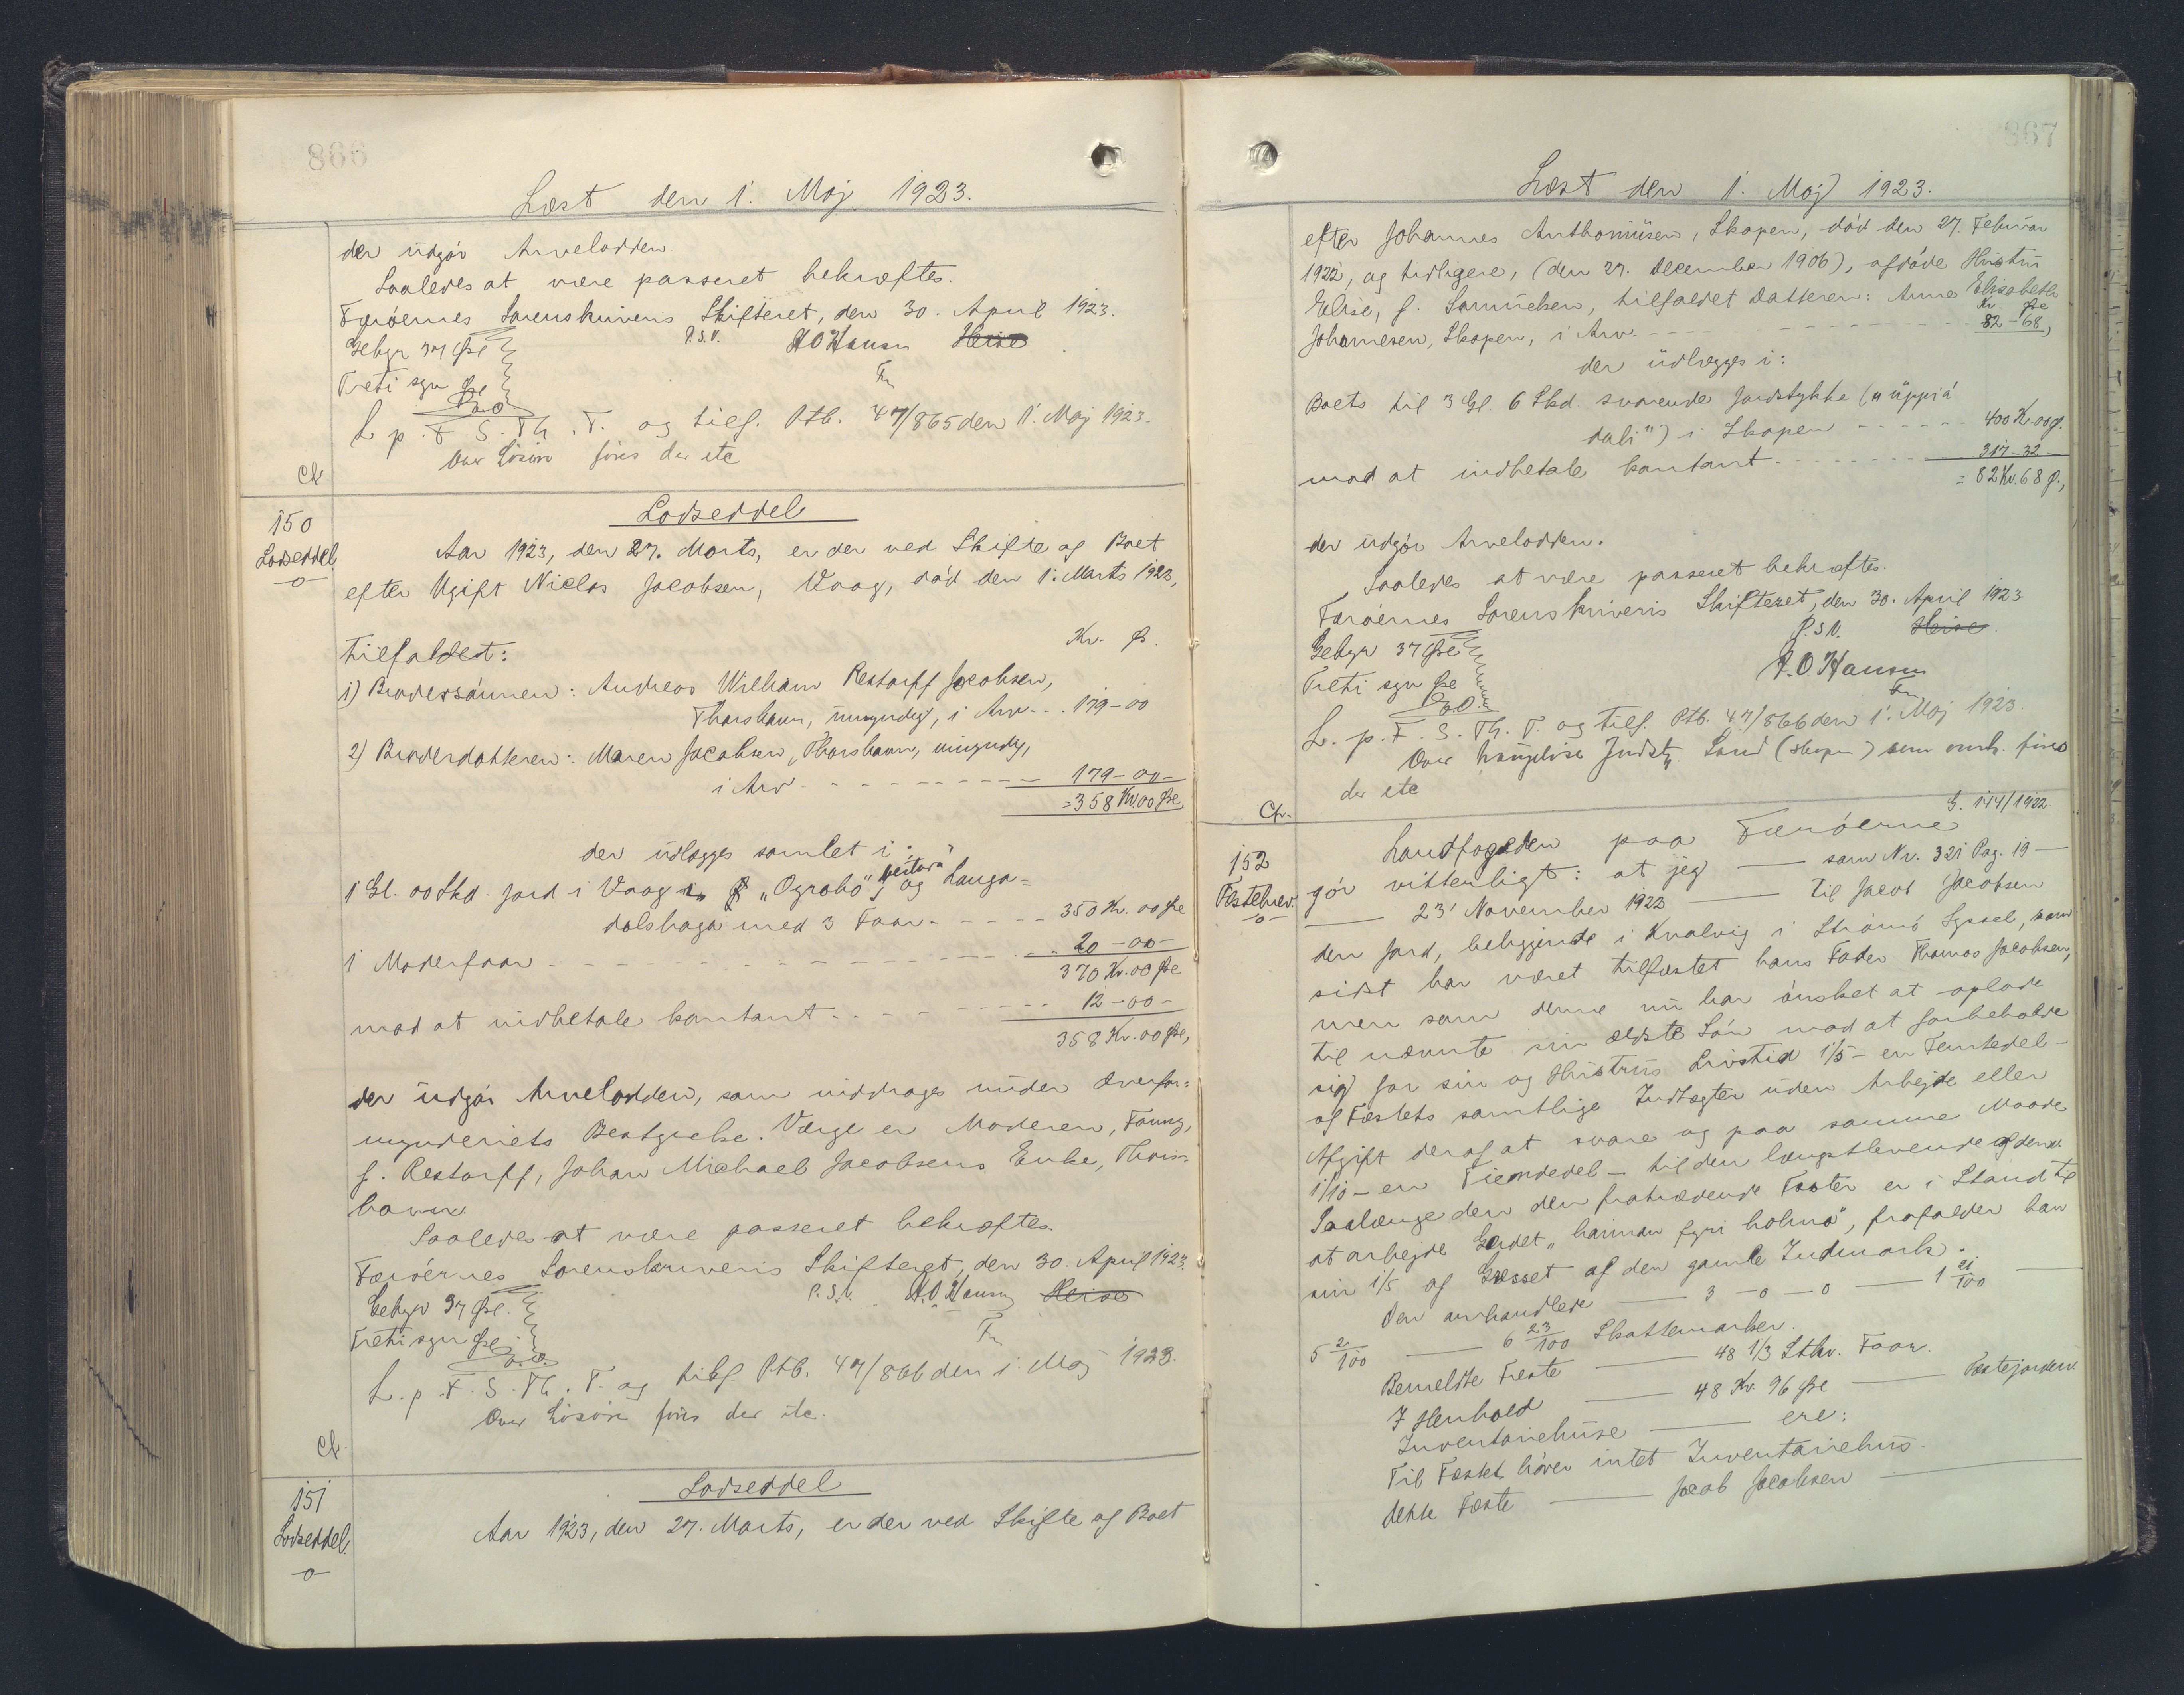 866
Læst den 1. Maj 1923.
der udgør Arvelodden
Saaledes at være passeret bekræftes.
Færøernes Sorenskriveris Skifteret, den 30. April 1923.
Gebyr 37 Øre P.S.V. H.O Hansen Heise
Treti syv Øre Fm
P.a.O
L. p. F. S. Th. T. og tilf. Ptb. 47/865 den 1. Maj 1923.
Over Løsøre føres der etc
Ch
Lodseddel
150
Lodseddel.
-o-
Aar 1923, den 27. Marts, er der ved Skifte af Boet
efter Ugift Niclas Jacobsen, Vaag, død den 1. Marts 1923,
Kr. Ø.
tilfaldet:
1) Brodersønnen: Andreas William Restorff Jacobsen,
Thorshavn, umyndig, i Arv - - 179-00
2) Broderdatteren: Maren Jacobsen, Thorshavn, umyndig,
i Arv - - - - - - 179-00-
=358 Kr. 00 Øre
der udlægges samlet i:
1 Gl. 00 Skd. Jord i Vaag „Ograbø", og Langa=
dalshaga med 3 Faar - - - - - 350 Kr. 00 Øre
1 Moderfaar - - - - - - - - 20-00-
370 Kr. 00 Øre
mod at indbetale kontant - - - - - - 12-00-
358 Kr. 00 Øre,
der udgør Arvelodden, som inddrages under Overfor=
mynderiets Bestyrelse. Værge er Moderen, Fanny,
f. Restorff, Johan Michael Jacobsens Enke, Thors=
havn.
Saaledes at være passeret bekræftes.
Færøernes Sorenskriveris Skifteret, den 30. April 1923.
Gebyr 37 Øre. P.S.V. H.O. Hansen Heise
Treti syv Øre Fm
P.a.O.
L. p. F. S. Th. T. og tilf. Ptb. 47/866 den 1. Maj 1923.
Over Løsøre føres der etc.
Ch.
Lodseddel
151
Lodseddel.
-o-
Aar 1923, den 27. Marts, er der ved Skifte af Boet
867
Læst den 1. Maj 1923.
efter Johannes Anthoniüsen, Skopen, død den 27. Februar
1922, og tidligere, (den 27. December 1906), afdøde Hustru
Elise, f. Samuelsen, tilfaldet Datteren: Anne Elisabeth
Kr. Øre
Johannesen, Skopen, i Arv - - - - - - - 82-68,
der udlægges i:
Boets til 3 Gl. 6 Skd svarende Jordstykke („uppi á
dali") i Skopen - - - - - - 400 Kr. 00 Ø.
mod at indbetale kontant - - - - - - - 317-32-
= 82 Kr. 68 Ø.,
der udgør Arvelodden.
Saaledes at være passeret bekræftes.
Færøernes Sorenskriveris Skifteret, den 30. April 1923
Gebyr 37 Øre P.S.V. Heise
Treti syv Øre H.O. Hansen
P.a.O. Fm
L. p. F. S. Th. T. og tilf. Ptb. 47/866 den 1. Maj 1923.
Over Sand (Skopen) som omh. føres
der etc
Ch.
G. 144/1922
152
Fæstebrev.
-o-
Landfogeden paa Færøerne
gør vitterligt: at jeg — som Nr. 321 Pag. 19 —
— 23' November 1922 — til Jacob Jacobsen
den Jord, beliggende i Kvalvig i Strømø Syssel, som
sidst har været tilfæstet hans Fader Thomas Jacobsen,
men som denne nu har ønsket at oplade
til nævnte sin ældste Søn mod at forbeholde
sig for sin og Hustrus Livstid 1/5 - en Femtedel -
af Fæstets samtlige Indtægter uden Arbejde eller
Afgift deraf at svare og paa samme Maade
1/10 - en Tiendedel - til den længstlevende af dem.
Saalænge den den fratrædende Fæster er i Stand til
at arbejde Gerdet „hannan fyri holmo", frafalder han
sin 1/5 af Græsset af den gamle Indmark.
Den omhandlede — 3 - 0 - 0 — 1 21/100 —
5 2/100 — 6 23/100 Skattemarker.
Bemeldte Fæste — 48 1/3 Stkr. Faar.
I Henhold — 48 Kr. 96 Øre — Fæstejorden
Inventariehuse — ere:
Til Fæstet hører intet Inventariehus.
dette Fæste — Jacob Jacobsen —